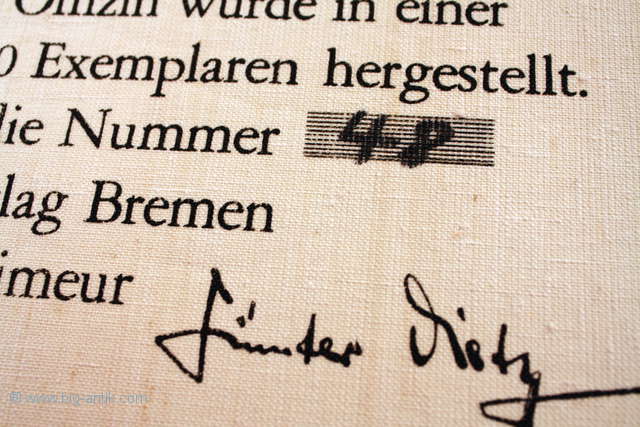 Offizin wurde in einer
0 Exemplaren hergestellt.
die Nummer
lag Bremen
imeur
Günter Dietz
© www.big-antik.com